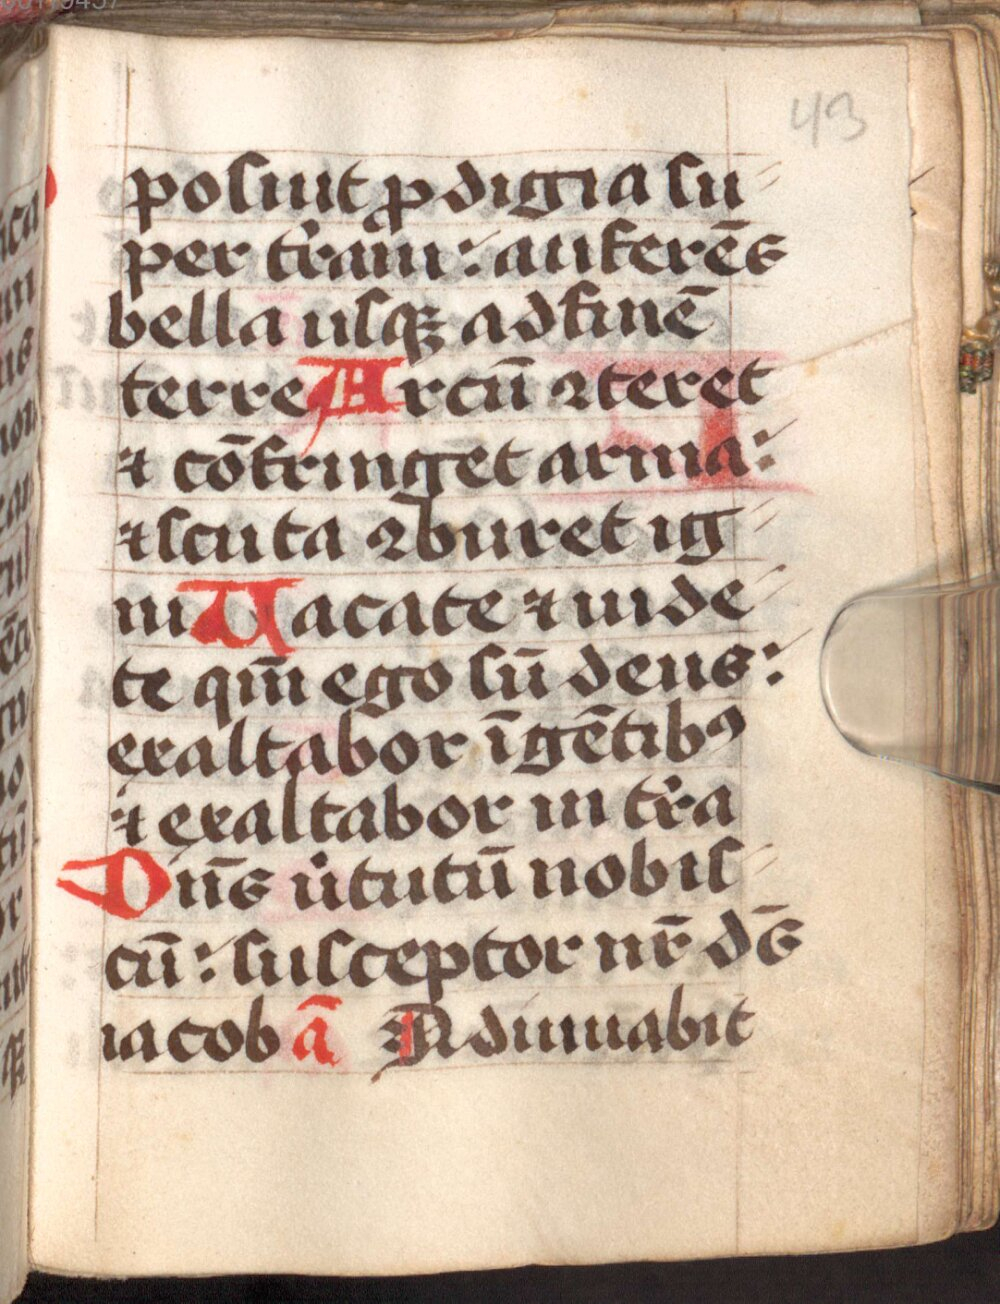 49
posuit ꝓdigia su⸗
per tr̄am: auferēs
bella usqꝫ ad finē
terre Arcū ꝯteret
⁊ cōfringēt arma:
⁊ scuta ꝯburet ig⸗
ni Uacate ⁊ uide⸗
te qm̄ ego sū deus:
exaltabor ī gētibꝰ
⁊ exaltabor in tr̄a
Dn̄s u̇tutū nobis⸗
cū: susceptor nr̄ ds̄
iacob ā Adiuuabit